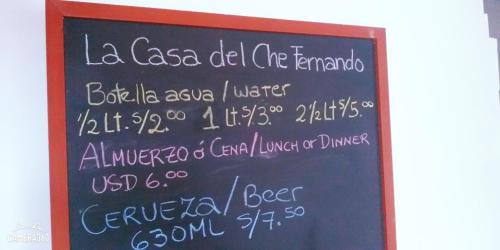 La Casa del Che Fernando
Botella agua / water
1/2 Lt. S/2.00 1 Lt. S/3.00 2 1/2 Lt S/5.00
ALMUERZO ó CENA / LUNCH or DINNER
USD 6.00
CERVEZA / Beer
630ML S/7.50
CAMERA360